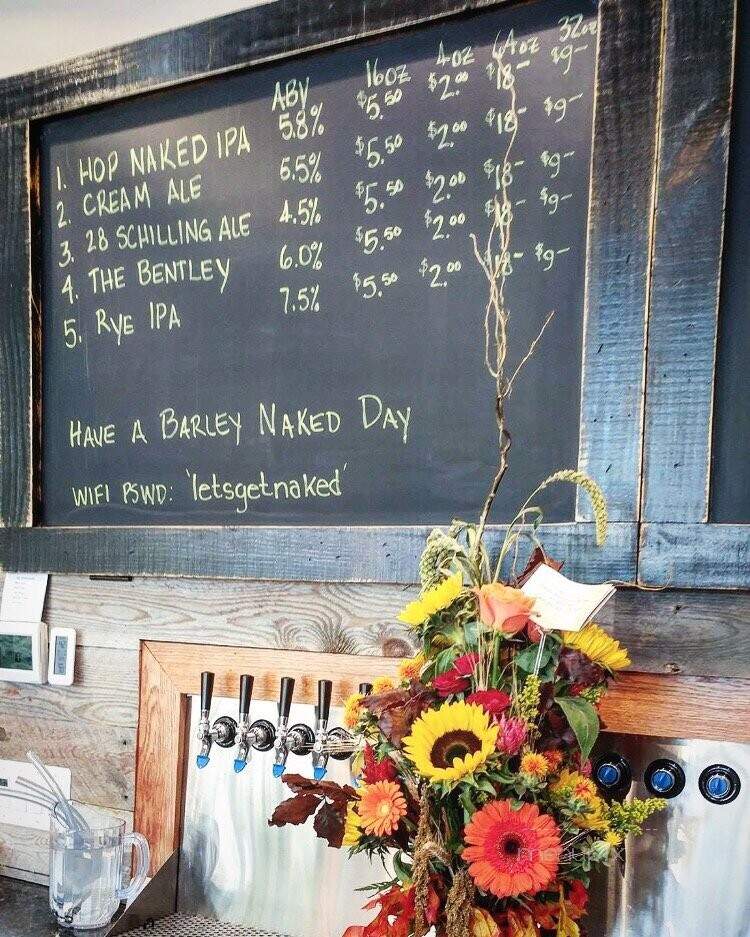 ABV 16oz 4oz 64oz 32oz
1. HOP NAKED IPA 5.8% $5.50 $2.00 $18- $9-
2. CREAM ALE 5.5% $5.50 $2.00 $18- $9-
3. 28 SCHILLING ALE 4.5% $5.50 $2.00 $18- $9-
4. THE BENTLEY 6.0% $5.50 $2.00 $18- $9-
5. RYE IPA 7.5% $5.50 $2.00 $18- $9-
HAVE A BARLEY NAKED DAY
WIFI PSWD: 'letsgetnaked'